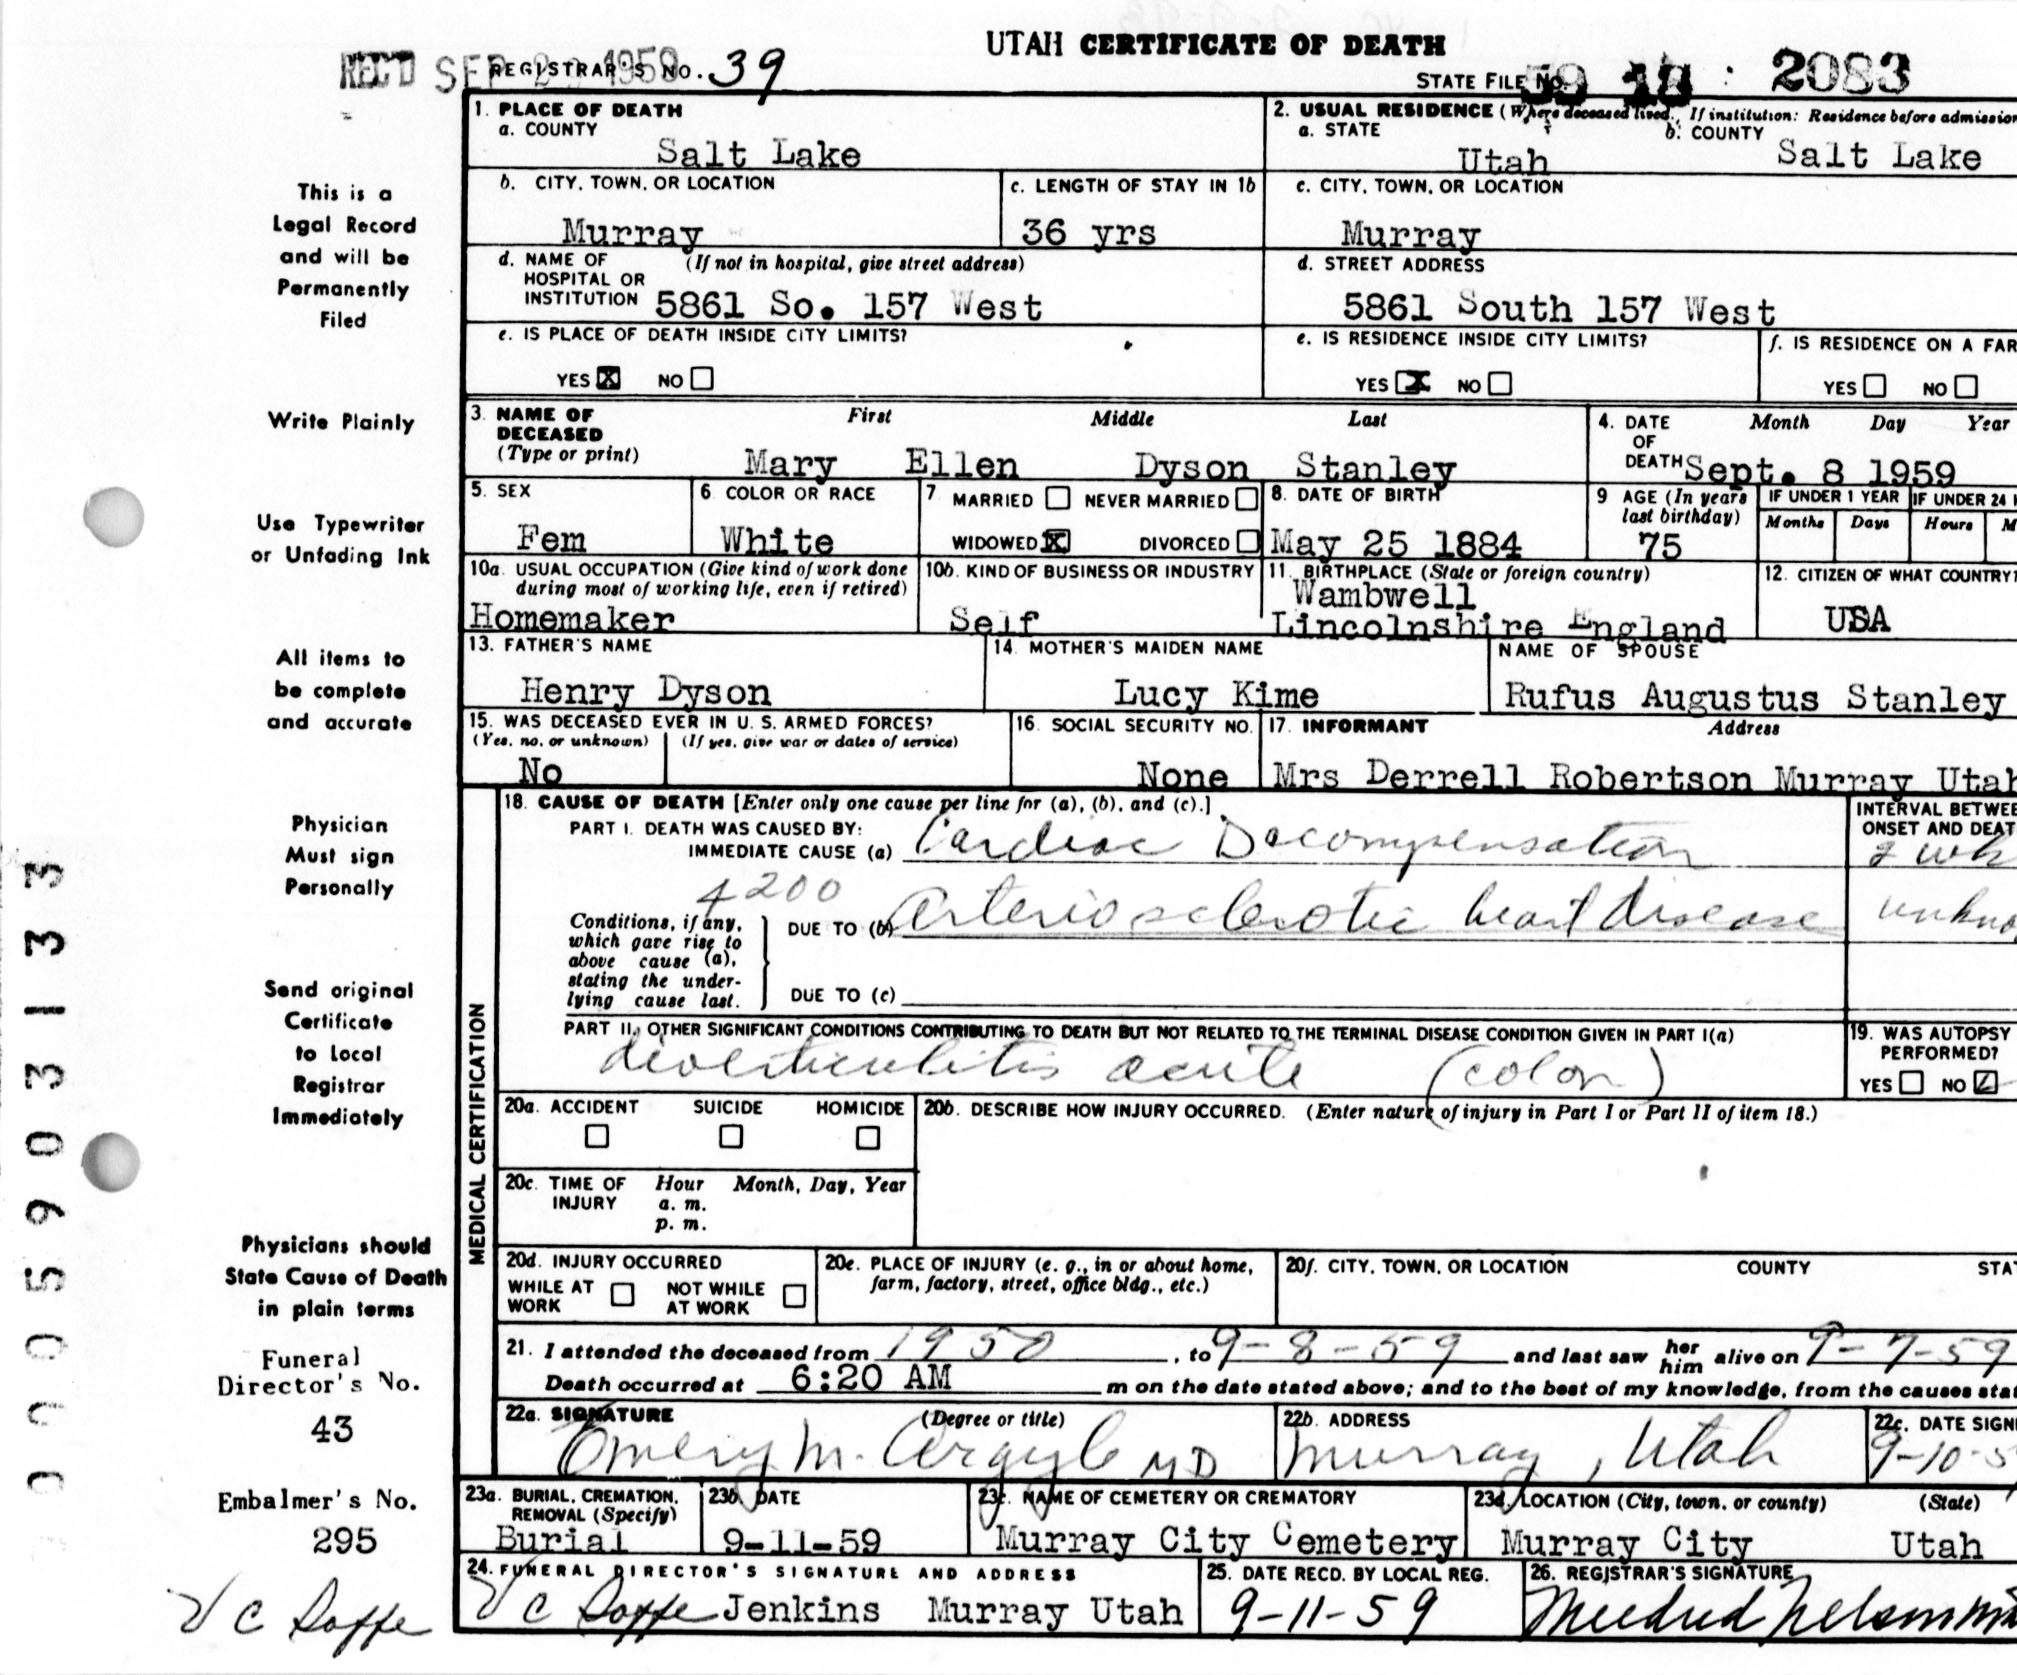 UTAH CERTIFICATE OF DEATH
REC'D SEP 1959 REGISTRAR'S NO. 39
STATE FILE NO. 59 18 2083
1. PLACE OF DEATH
a. COUNTY
Salt Lake
2. USUAL RESIDENCE (Where deceased lived. If institution: Residence before admission
a. STATE
Utah
b. COUNTY
Salt Lake
b. CITY, TOWN, OR LOCATION
Murray
c. LENGTH OF STAY IN 1b
36 yrs
c. CITY, TOWN, OR LOCATION
Murray
d. NAME OF HOSPITAL OR INSTITUTION (If not in hospital, give street address)
5861 So. 157 West
d. STREET ADDRESS
5861 South 157 West
e. IS PLACE OF DEATH INSIDE CITY LIMITS?
YES X NO
e. IS RESIDENCE INSIDE CITY LIMITS?
YES X NO
f. IS RESIDENCE ON A FAR
YES NO
3. NAME OF DECEASED (Type or print)
First Middle Last
Mary Ellen Dyson Stanley
4. DATE OF DEATH
Month Day Year
Sept. 8 1959
5. SEX
Fem
6. COLOR OR RACE
White
7. MARRIED NEVER MARRIED
WIDOWED X DIVORCED
8. DATE OF BIRTH
May 25 1884
9. AGE (In years last birthday)
75
IF UNDER 1 YEAR
Months Days
IF UNDER 24 H
Hours M
10a. USUAL OCCUPATION (Give kind of work done during most of working life, even if retired)
Homemaker
10b. KIND OF BUSINESS OR INDUSTRY
Self
11. BIRTHPLACE (State or foreign country)
Wambwell
Lincolnshire England
12. CITIZEN OF WHAT COUNTRY?
USA
13. FATHER'S NAME
Henry Dyson
14. MOTHER'S MAIDEN NAME
Lucy Kime
NAME OF SPOUSE
Rufus Augustus Stanley
15. WAS DECEASED EVER IN U. S. ARMED FORCES?
(Yes, no, or unknown) (If yes, give war or dates of service)
No
16. SOCIAL SECURITY NO.
None
17. INFORMANT Address
Mrs Derrell Robertson Murray Utah
MEDICAL CERTIFICATION
18. CAUSE OF DEATH [Enter only one cause per line for (a), (b), and (c).]
PART I. DEATH WAS CAUSED BY:
IMMEDIATE CAUSE (a) Cardiac Decompensation
INTERVAL BETWEE
ONSET AND DEAT
2 wk
4200
Conditions, if any, which gave rise to above cause (a), stating the underlying cause last.
DUE TO (b) Arteriosclerotic heart disease
unkno
DUE TO (c)
PART II. OTHER SIGNIFICANT CONDITIONS CONTRIBUTING TO DEATH BUT NOT RELATED TO THE TERMINAL DISEASE CONDITION GIVEN IN PART I(a)
diverticulitis acute (colon)
19. WAS AUTOPSY PERFORMED?
YES NO
20a. ACCIDENT SUICIDE HOMICIDE
20b. DESCRIBE HOW INJURY OCCURRED. (Enter nature of injury in Part I or Part II of item 18.)
20c. TIME OF INJURY Hour Month, Day, Year
a. m.
p. m.
20d. INJURY OCCURRED
WHILE AT WORK NOT WHILE AT WORK
20e. PLACE OF INJURY (e. g., in or about home, farm, factory, street, office bldg., etc.)
20f. CITY, TOWN, OR LOCATION COUNTY STA
21. I attended the deceased from 1950, to 9-8-59 and last saw her him alive on 9-7-59
Death occurred at 6:20 AM m on the date stated above; and to the best of my knowledge, from the causes stat
22a. SIGNATURE (Degree or title)
Emery M. Argyle MD
22b. ADDRESS
Murray, Utah
22c. DATE SIGN
9-10-5
23a. BURIAL, CREMATION, REMOVAL (Specify)
Burial
23b. DATE
9-11-59
23c. NAME OF CEMETERY OR CREMATORY
Murray City Cemetery
23d. LOCATION (City, town, or county) (State)
Murray City Utah
24. FUNERAL DIRECTOR'S SIGNATURE AND ADDRESS
Jenkins Murray Utah
25. DATE RECD. BY LOCAL REG.
9-11-59
26. REGISTRAR'S SIGNATURE
Mildred Nelson
This is a
Legal Record
and will be
Permanently
Filed
Write Plainly
Use Typewriter
or Unfading Ink
All items to
be complete
and accurate
Physician
Must sign
Personally
Send original
Certificate
to Local
Registrar
Immediately
Physicians should
State Cause of Death
in plain terms
Funeral
Director's No.
43
Embalmer's No.
295
0005903133